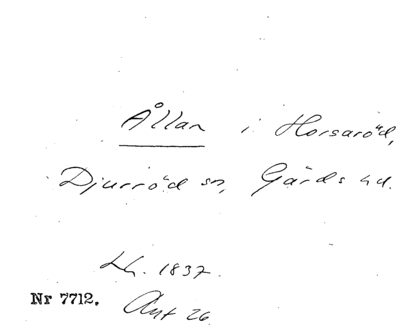 Ållan i Horsaröd,
Djurröd sn, Gärds hd.
Lh. 1837.
Nr 7712. Akt 26